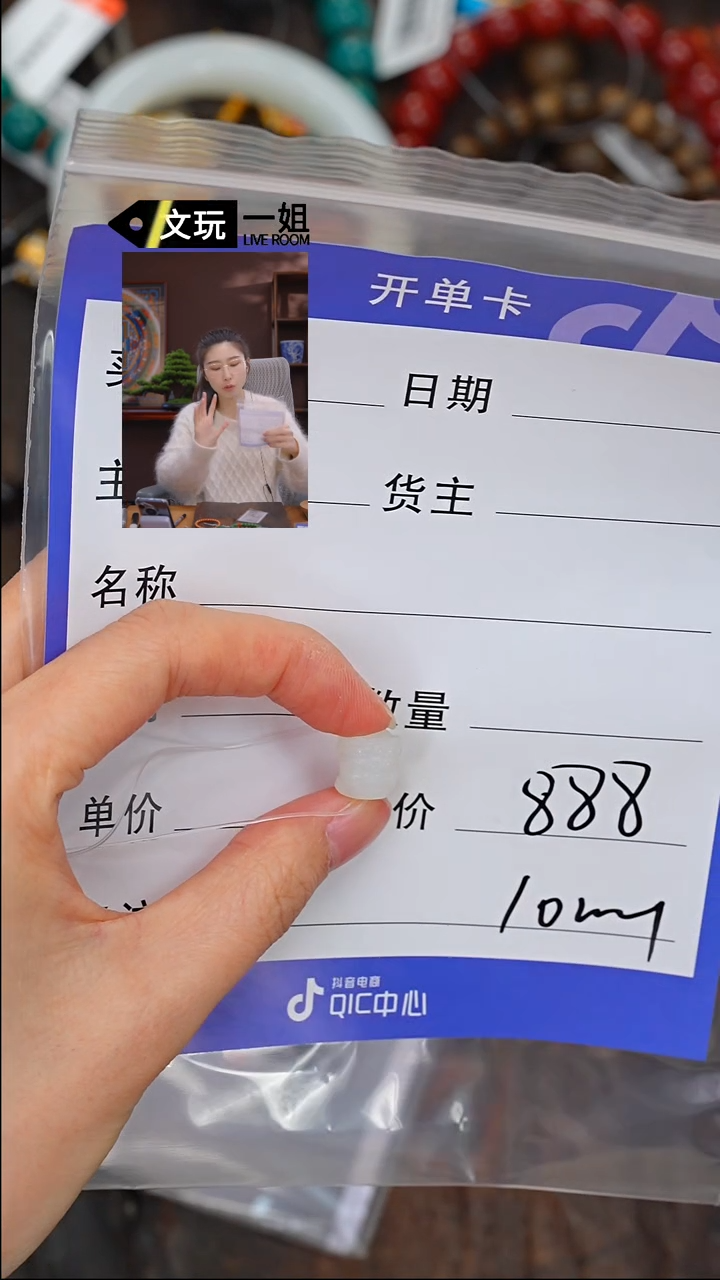 文玩 一姐
LIVE ROOM
开单卡
日期
货主
名称
数量
单价
价 888
10mm
抖音电商
QIC中心